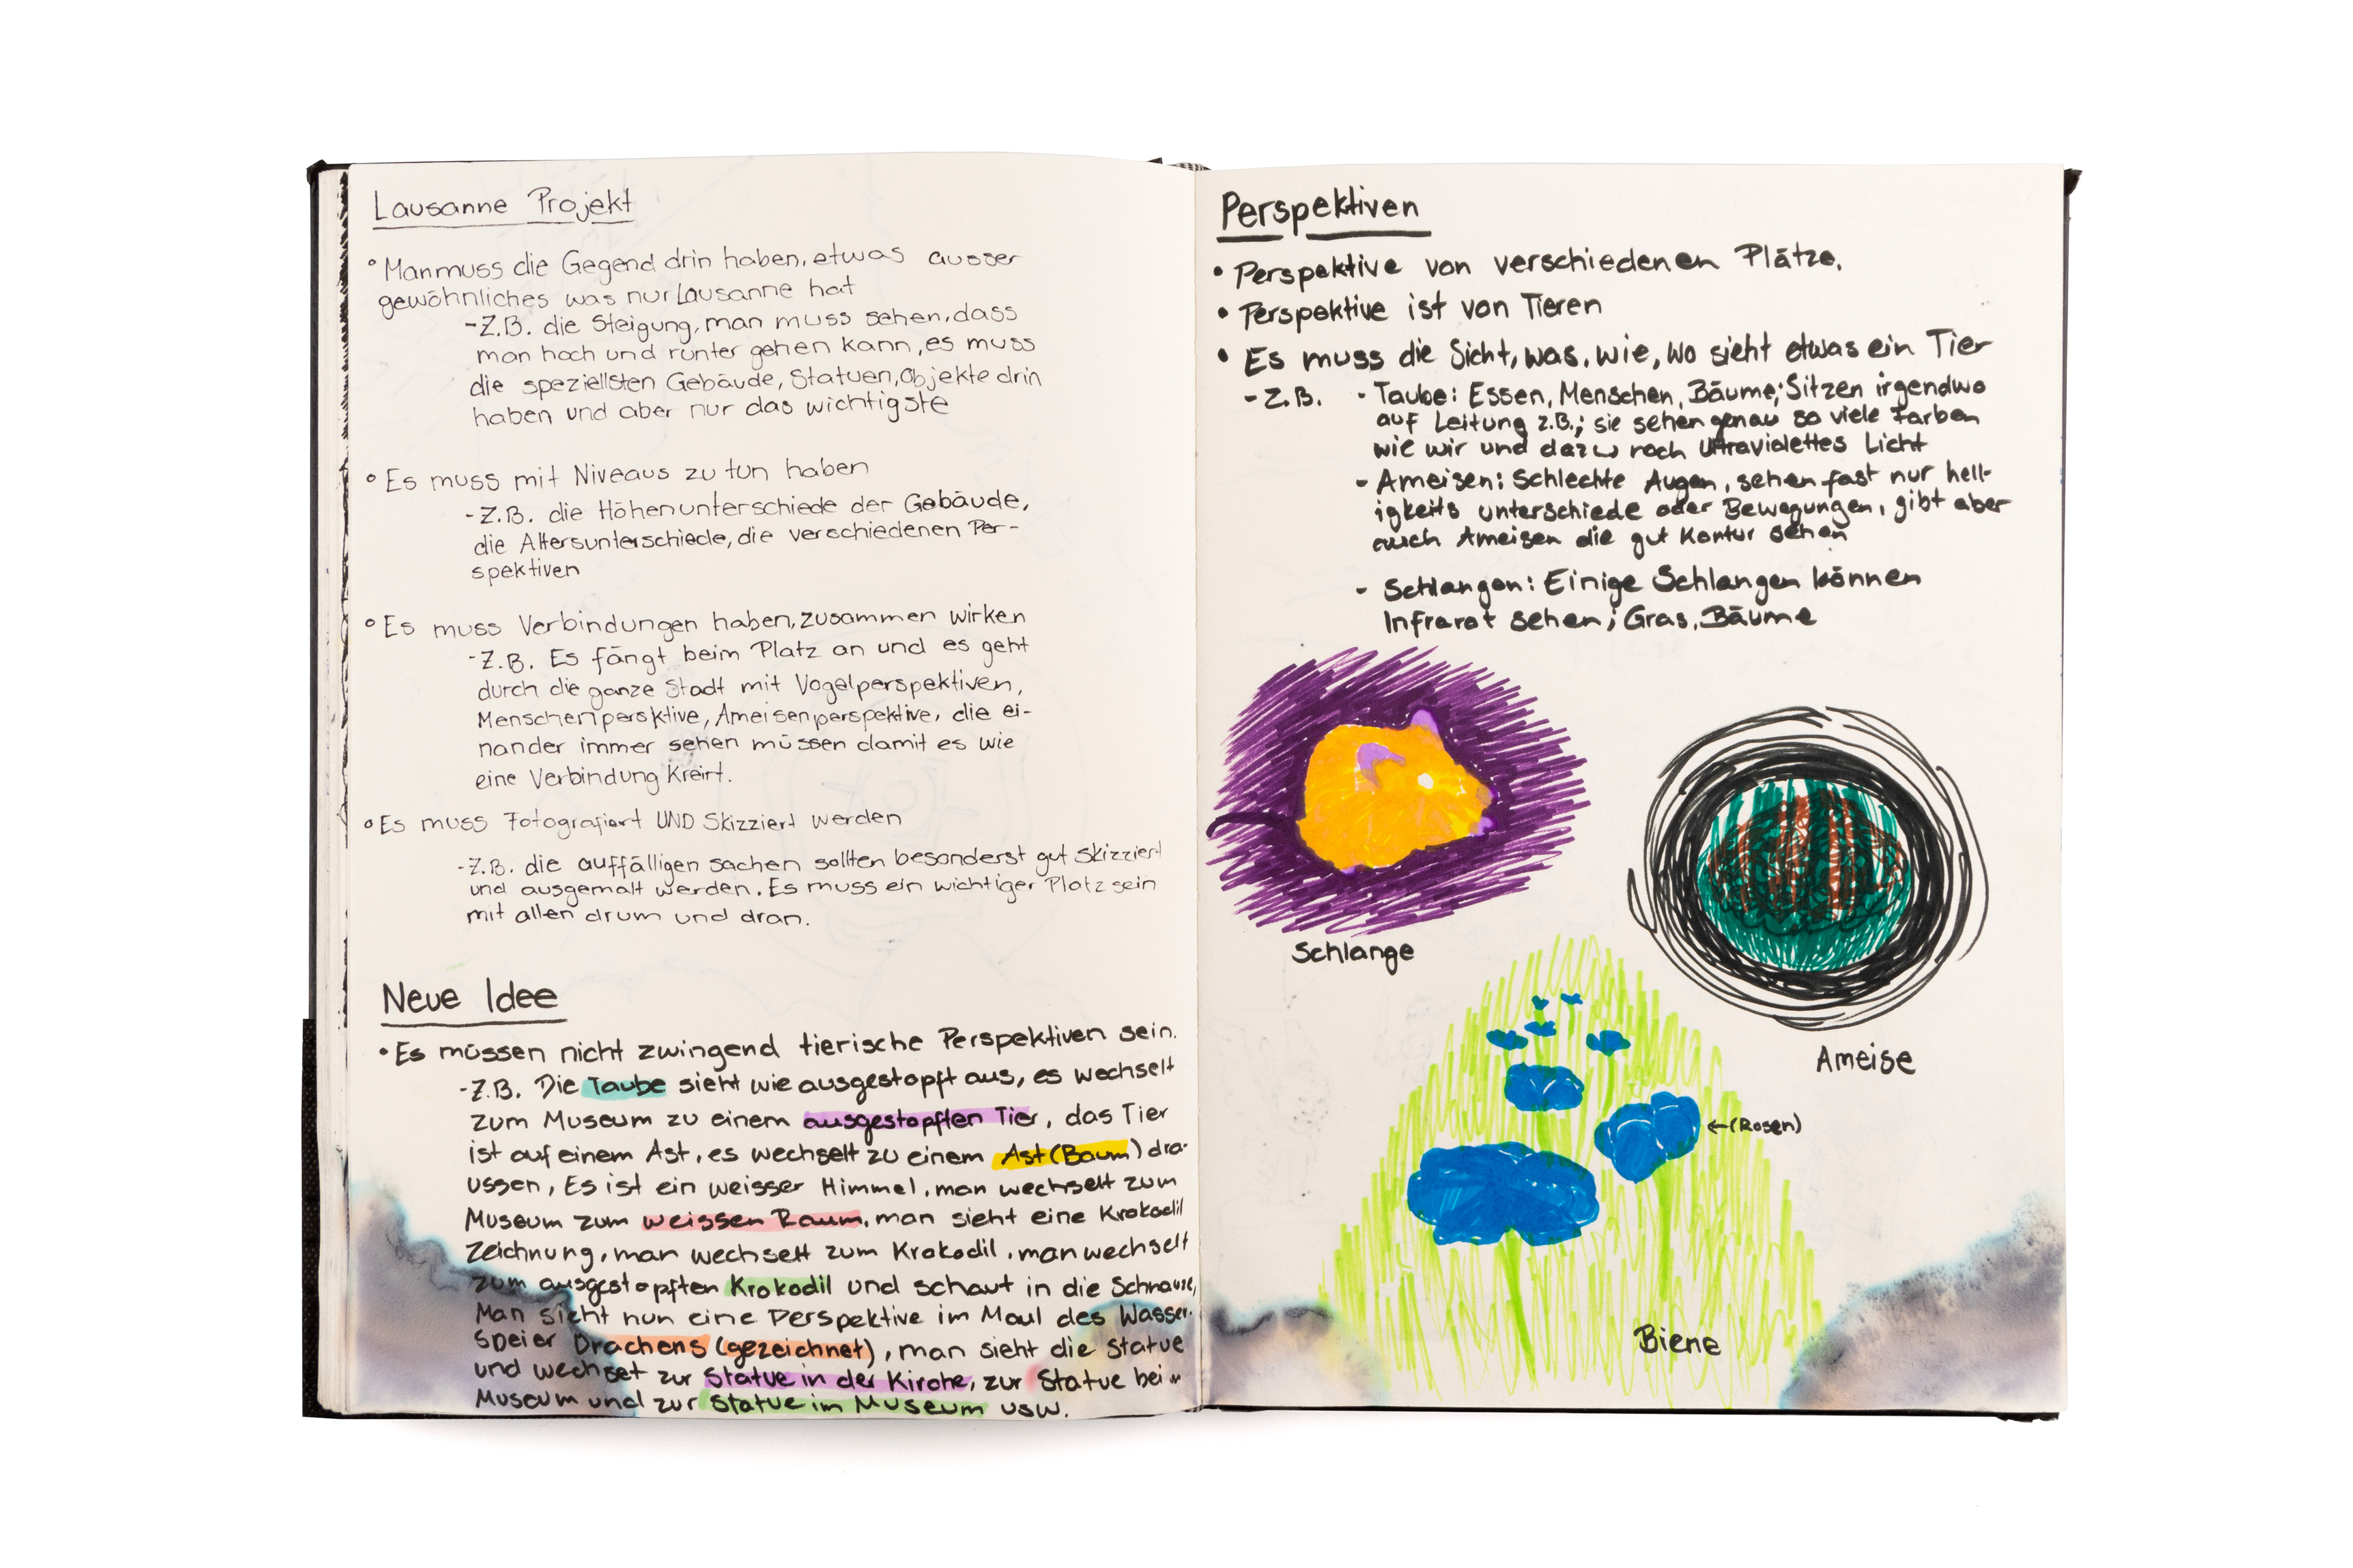 Lausanne Projekt
° Man muss die Gegend drin haben, etwas ausser
gewöhnliches was nur Lausanne hat
- Z.B. die Steigung, man muss sehen, dass
man hoch und runter gehen kann, es muss
die speziellsten Gebäude, Statuen, Objekte drin
haben und aber nur das wichtigste
° Es muss mit Niveaus zu tun haben
- Z.B. die Höhenunterschiede der Gebäude,
die Altersunterschiede, die verschiedenen Per-
spektiven
° Es muss Verbindungen haben, zusammen wirken
- Z.B. Es fängt beim Platz an und es geht
durch die ganze Stadt mit Vogelperspektiven,
Menschenpersktive, Ameisenperspektive, die ei-
nander immer sehen müssen damit es wie
eine Verbindung Kreirt.
° Es muss Fotografiert UND Skizziert werden
- Z.B. die auffälligen sachen sollten besonderst gut skizziert
und ausgemalt werden. Es muss ein wichtiger Platz sein
mit allen drum und dran.
Neue Idee
• Es müssen nicht zwingend tierische Perspektiven sein.
- Z.B. Die Taube sieht wie ausgestopft aus, es wechselt
zum Museum zu einem ausgestopften Tier, das Tier
ist auf einem Ast, es wechselt zu einem Ast (Baum) dra-
ussen, Es ist ein weisser Himmel, man wechselt zum
Museum zum weissen Raum, man sieht eine Krokodil
Zeichnung, man wechselt zum Krokodil, man wechselt
zum ausgestopften Krokodil und schaut in die Schnauze,
Man sieht nun eine Perspektive im Maul des Wasser-
speier Drachens (gezeichnet), man sieht die Statue
und wechset zur Statue in der Kirche, zur Statue beim
Museum und zur Statue im Museum usw.
Perspektiven
• Perspektive von verschiedenen Plätze.
• Perspektive ist von Tieren
• Es muss die Sicht, was, wie, wo sieht etwas ein Tier
- Z.B. - Taube: Essen, Menschen, Bäume; Sitzen irgendwo
auf Leitung z.B.; sie sehen genau so viele Farben
wie wir und dazu noch Ultraviolettes Licht
- Ameisen: Schlechte Augen, sehen fast nur hell-
igkeits unterschiede oder Bewegungen, gibt aber
auch Ameisen die gut Kontur sehen
- Schlangen: Einige Schlangen können
Infrarot sehen; Gras, Bäume
Schlange
Ameise
← (Rosen)
Biene